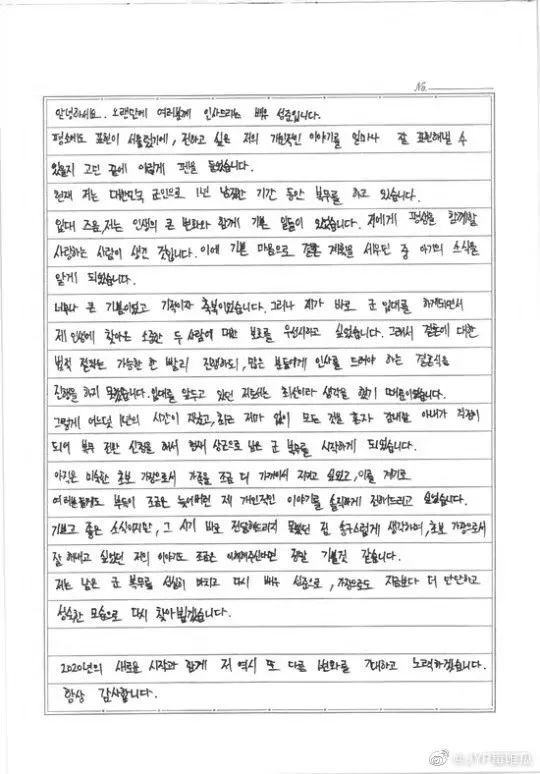 No.
안녕하세요.. 오랜만에 여러분께 인사드리는 배우 성준입니다.
평소에도 표현이 서툴렀기에, 전하고 싶은 저의 개인적인 이야기를 얼마나 잘 표현해낼 수
있을지 고민 끝에 이렇게 펜을 들었습니다.
현재 저는 대한민국 군인으로 1년 남짓한 기간 동안 복무를 하고 있습니다.
입대 즈음, 저는 인생의 큰 변화와 함께 기쁜 일들이 있었습니다. 저에게 평생을 함께할
사랑하는 사람이 생긴 것입니다. 이에 기쁜 마음으로 결혼 계획을 세우던 중 아기의 소식을
알게 되었습니다.
너무나 큰 기쁨이었고 기적이자 축복이었습니다. 그러나 제가 바로 군 입대를 하게되면서
제 인생에 찾아온 소중한 두 사람에 대한 보호를 우선시하고 싶었습니다. 그래서 결혼에 대한
법적 절차는 가능한 한 빨리 진행하되, 많은 분들에게 인사를 드려야 하는 결혼식을
진행을 하지 못했습니다. 입대를 앞두고 있던 저로서는 최선이라 생각을 했기 때문이었습니다.
그렇게 어느덧 1년의 시간이 지났고, 최근 저마 없이 모든 것을 혼자 감내할 아내가 걱정이
되어 복무 전환 신청을 해서 현재 상근으로 남은 군 복무를 시작하게 되었습니다.
아직은 미숙한 초보 가장으로서 가족을 조금 더 가까이서 지키고 싶었고, 이를 계기로
여러분들께도 부득이 조금은 늦어버린 제 개인적인 이야기를 솔직하게 전해드리고 싶었습니다.
기쁘고 좋은 소식이지만, 그 시기 바로 전달해드리지 못했던 점 송구스럽게 생각하며, 초보 가장으로서
잘 해내고 싶었던 저의 이야기도 조금은 이해해주신다면 정말 기쁠것 같습니다.
저는 남은 군 복무를 성실히 마치고 다시 배우 성준으로, 가장으로도 지금보다 더 단단하고
성숙한 모습으로 다시 찾아뵙겠습니다.
2020년의 새로운 시작과 함께 저 역시 또 다를 변화를 기대하고 노력하겠습니다.
항상 감사합니다.